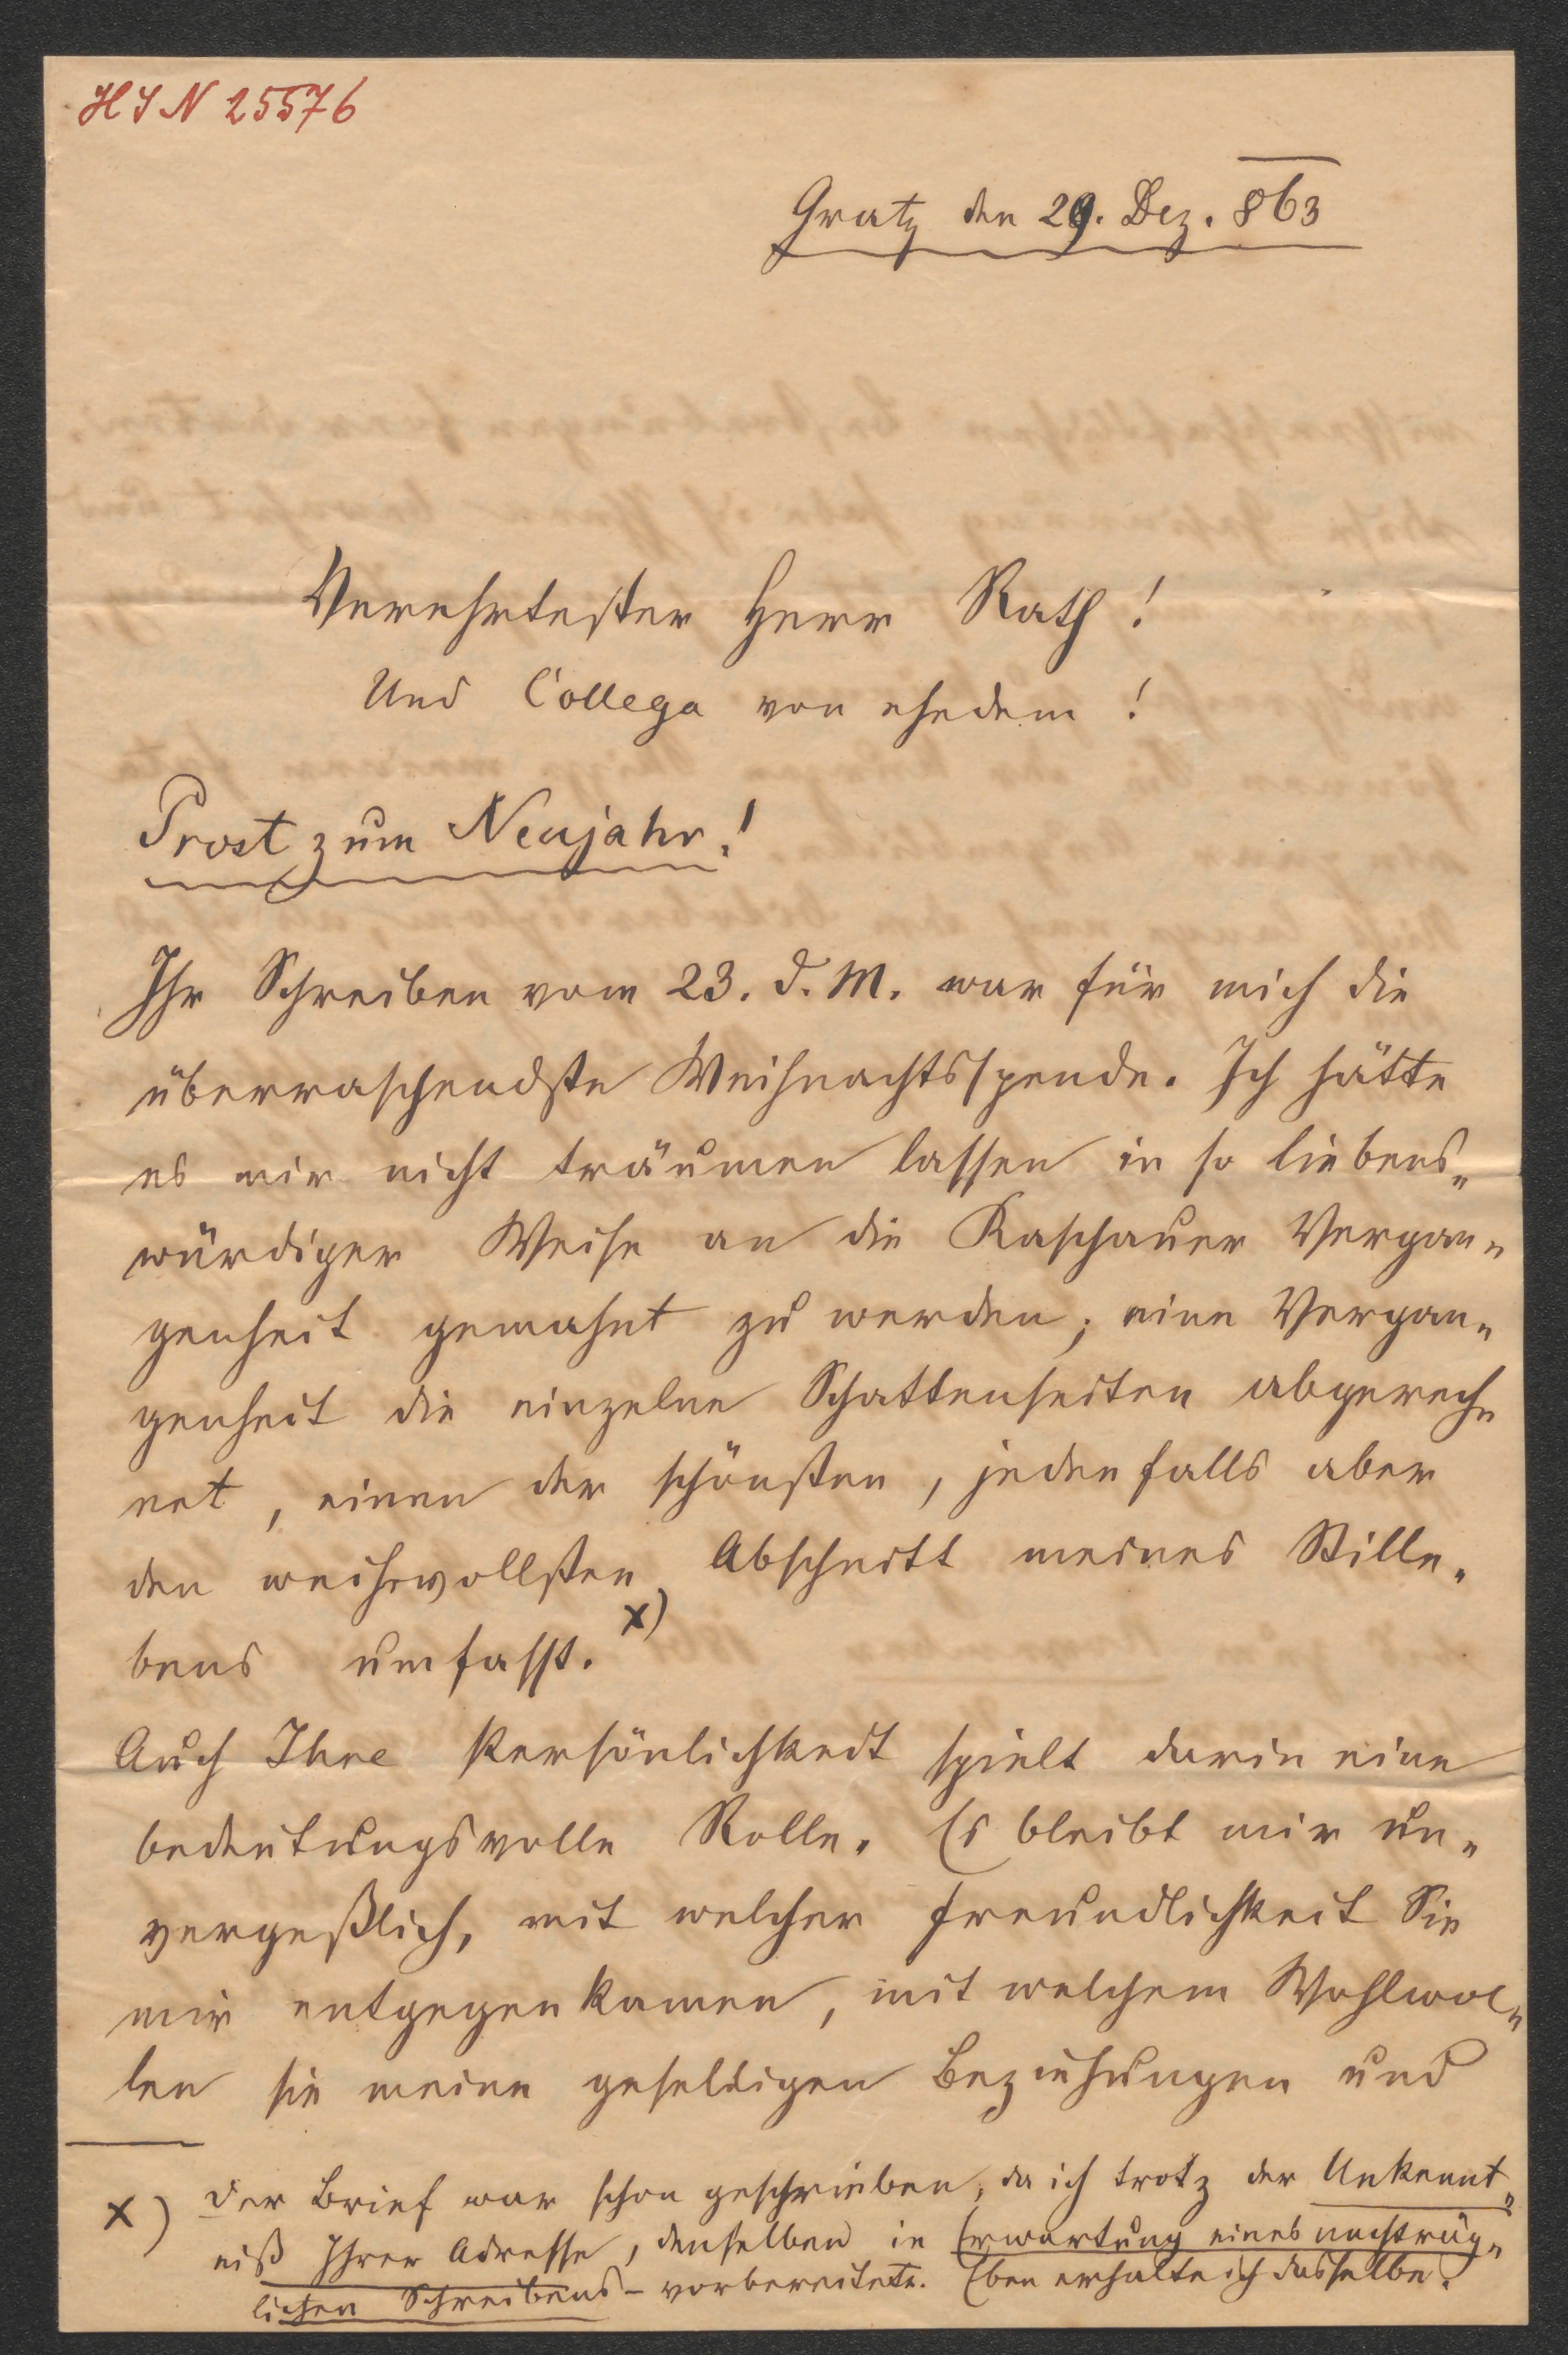 HIN 25576
Gratz den 29. Dez. 863
Verehrtester Herr Rath!
Und Collega von ehedem!
Prost zum Neujahr!
Ihr Schreiben vom 23. d. M. war für mich die
überraschendste Weihnachtsspende. Ich hätte
es mir nicht träumen lassen in so liebens„
würdiger Weise an die Kaschauer Vergan„
genheit gemahnt zu werden; eine Vergan„
genheit die einzelne Schattenseiten abgerech„
net, einen der schönsten, jedenfalls aber
den weihevollsten Abschnitt meines Stille„
bens umfasst. x)
Auch Ihre Persönlichkeit spielt darin eine
bedeutungsvolle Rolle. Es bleibt mir un„
vergeßlich, mit welcher Freundlichkeit Sie
mir entgegenkamen, mit welchem Wohlwol„
len sie meine geselligen Beziehungen und
x) Der Brief war schon geschrieben, da ich trotz der Unkennt„
niß Ihrer Adresse, denselben in Erwartung eines nachträg„
lichen Schreibens – vorbereitete. Eben erhalte ich dasselbe.